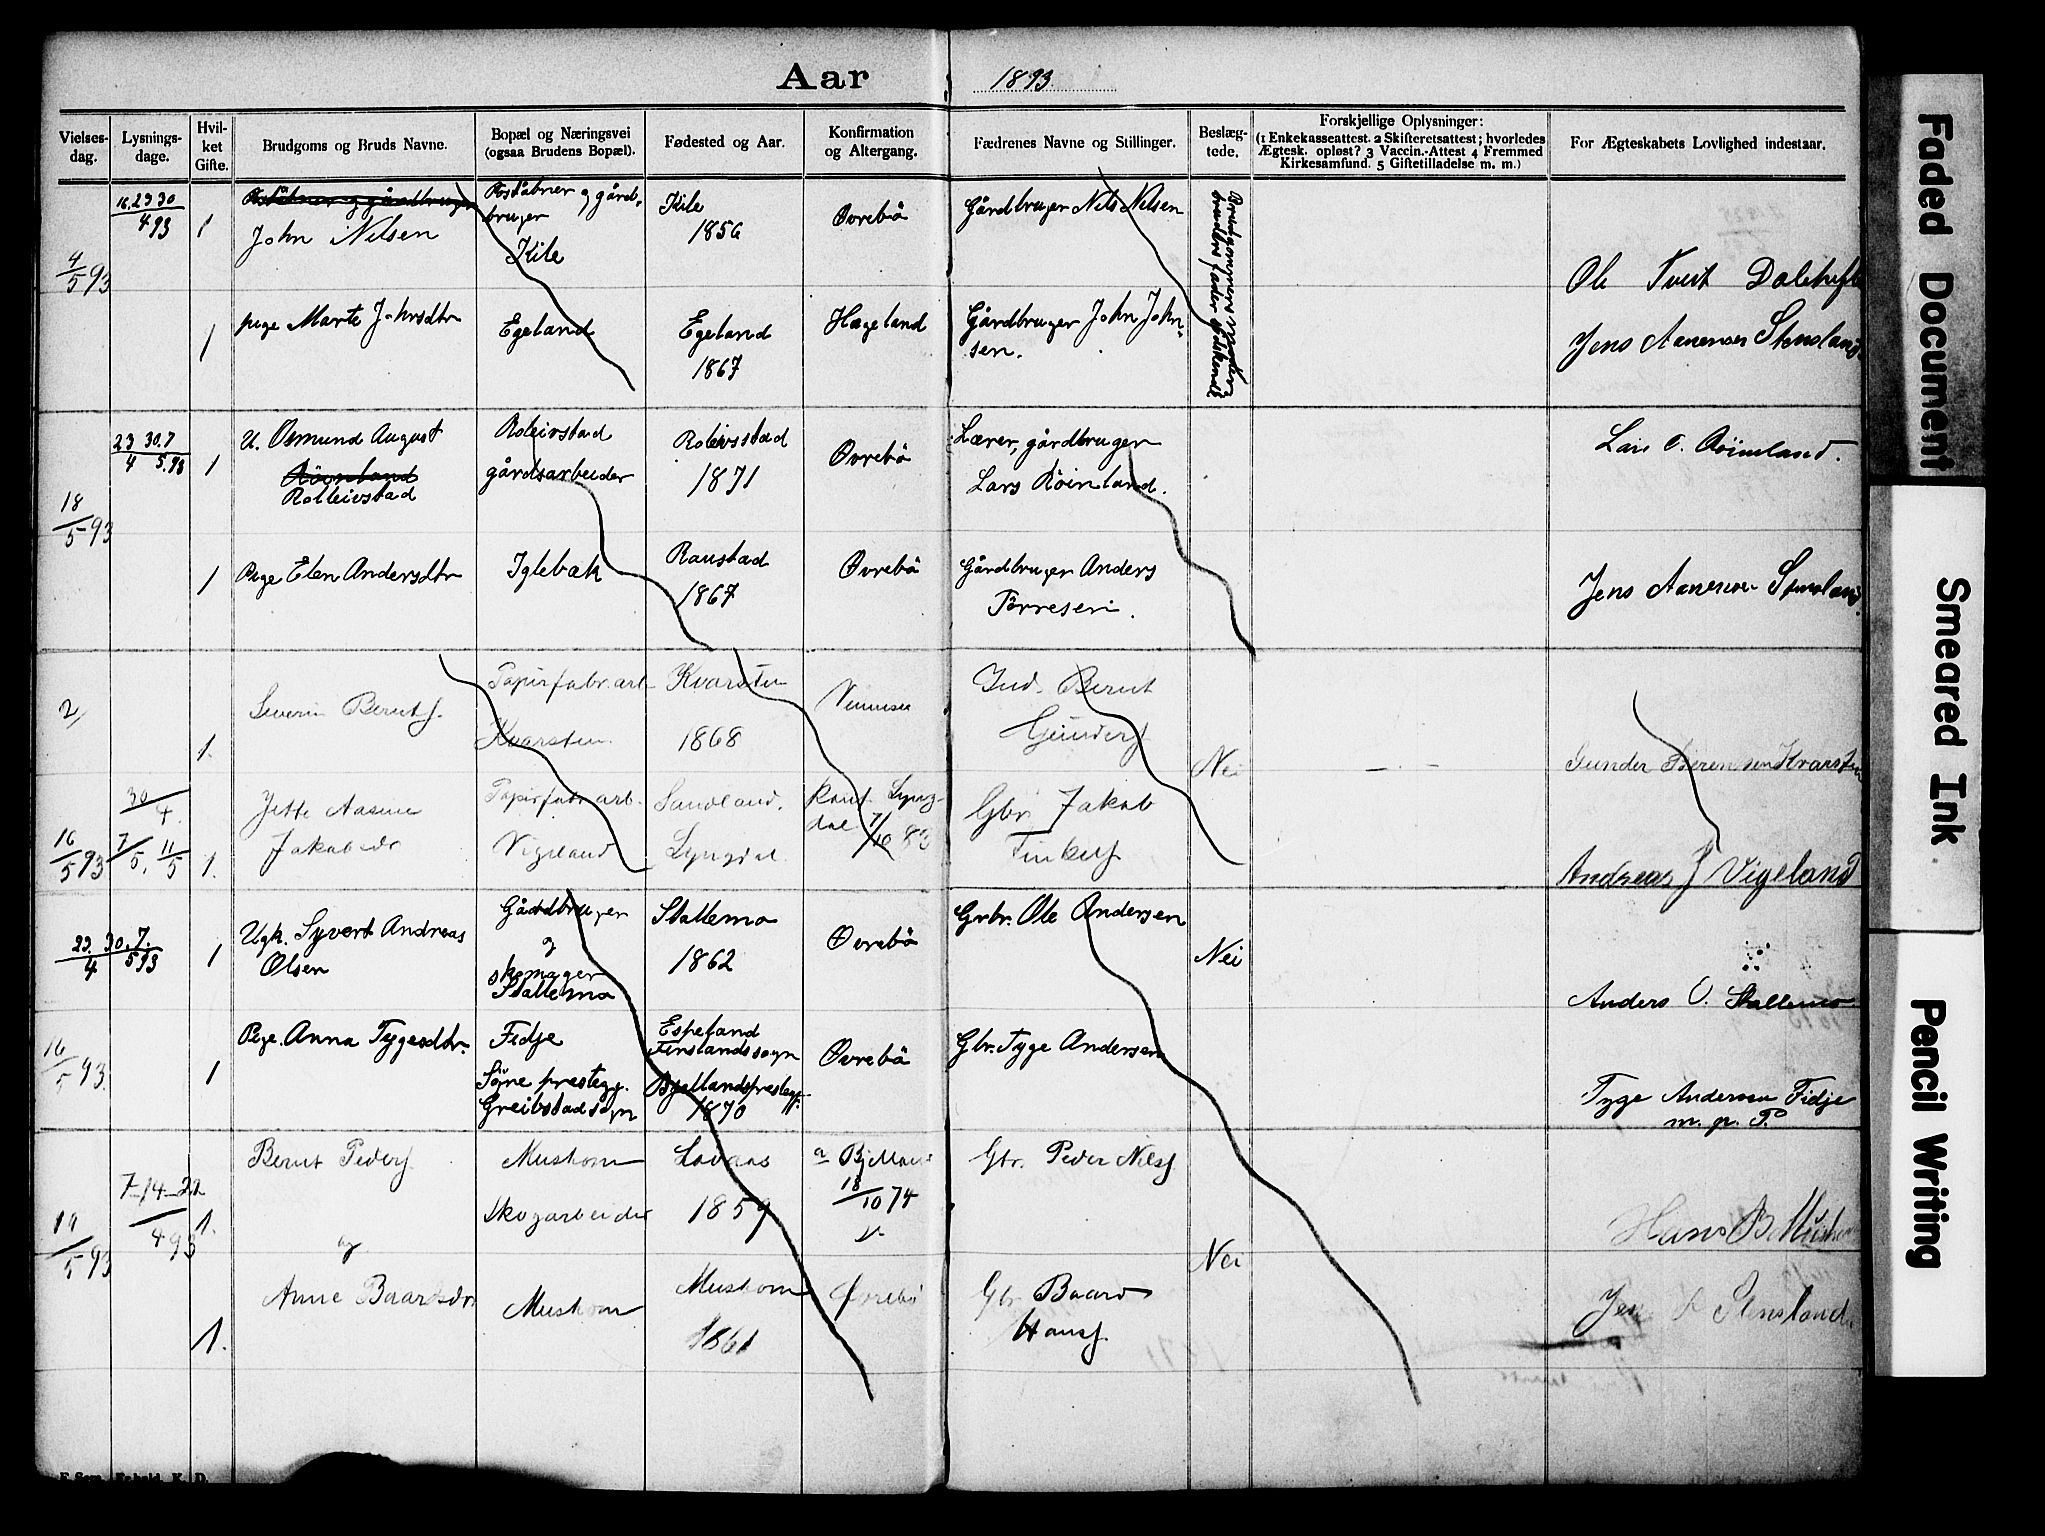 Aar 1893.
Vielses-dag. Lysnings-dage. Hvil-ket Gifte. Brudgoms og Bruds Navne. Bopæl og Næringsvei (ogsaa Brudens Bopæl). Fødested og Aar. Konfirmation og Altergang. Fædrenes Navne og Stillinger. Beslæg-tede. Forskjellige Oplysninger: (1 Enkekasseattest. 2 Skifteretsattest; hvorledes Ægtesk. opløst? 3 Vaccin.-Attest 4 Fremmed Kirkesamfund. 5 Giftetilladelse m. m.) For Ægteskabets Lovlighed indestaar.
4/5 93
16. 23 30
4 93
1
Postabner og gårdbruger
John Nilsen
Postabner og gård-
bruger
Kile
Kile
1856
Øvrebö
Gårdbruger Nils Nilsen
Ole Tveit
1
pige Marte Johnsdtr
Egeland
Egeland
1867
Hægeland
Gårdbruger John John-
sen.
Jens Aanensen Stensland
18/5 93
23 30. 7
4 5. 93
1
U. Osmund August
Röinland
Rolleivstad
Roleivstad
gårdsarbeider
Roleivsstad
1871
Øvrebö
Lærer, gårdbruger
Lars Röinland.
Lars O. Röinland.
1
Pige Elen Andersdtr
Iglebæk
Raustad
1867
Øvrebö
Gårdbruger Anders
Torresen.
Jens Aanensen Stensland.
2/
1.
Severin Bernts.
Papirfabr.arb
Kvarsten.
Kvarsten
1868
Vennesla
Ind. Bernt
Gunders.
Nei
Gunder Berentsen Kvarsten
16/5 93
30/4.
7/5, 11/5
1.
Jette Aasine
Jakobsdr
Papirfabr.arb.
Vigeland
Sandland.
Lyngdal
Konf. Lyng-
dal 7/10 83
Gbr. Jakob
Tinkels.
Andreas J Vigeland
23. 30. 7.
4 5 93
1
Ugk. Syvert Andreas
Olsen
Gårdbruger
og
skomager
Stallemo
Stallemo
1862
Øvrebö
Grbr. Ole Andersen
Nei
Anders O. Stallemo
16/5 93.
1
Pige. Anna Tygesdtr.
Fidje
Søgne prestegj.
Greibstad sogn
Espeland
Finslands sogn
Bjellands prestegj.
1870
Øvrebö
Gbr. Tyge Andersen
Tyge Andersen Fidje
m. p. P.
14/5 93
7-14-21
4 93
1.
Bernt Peders.
og
Muskom
Skogarbeider
Lovaas
1859
a Bjelland
18/10 74
Gbr. Peder Nils.
Nei
Hans B Muskom
1.
Anne Baardsdr
Muskom
Muskom
1861
Øvrebö
Gbr. Baard
Hans.
Jens A Stensland.
Faded Document
Smeared Ink
Pencil Writing